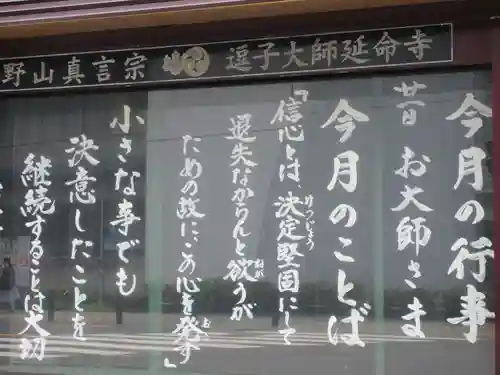 野山真言宗 逗子大師延命寺
今月の行事
廿一日 お大師さま
今月のことば
「信心とは、決定堅固にして
けつじょう
退失なからんと欲うが
ねが
ための故に、この心を発す」
おこ
小さな事でも
決意したことを
継続することは大切